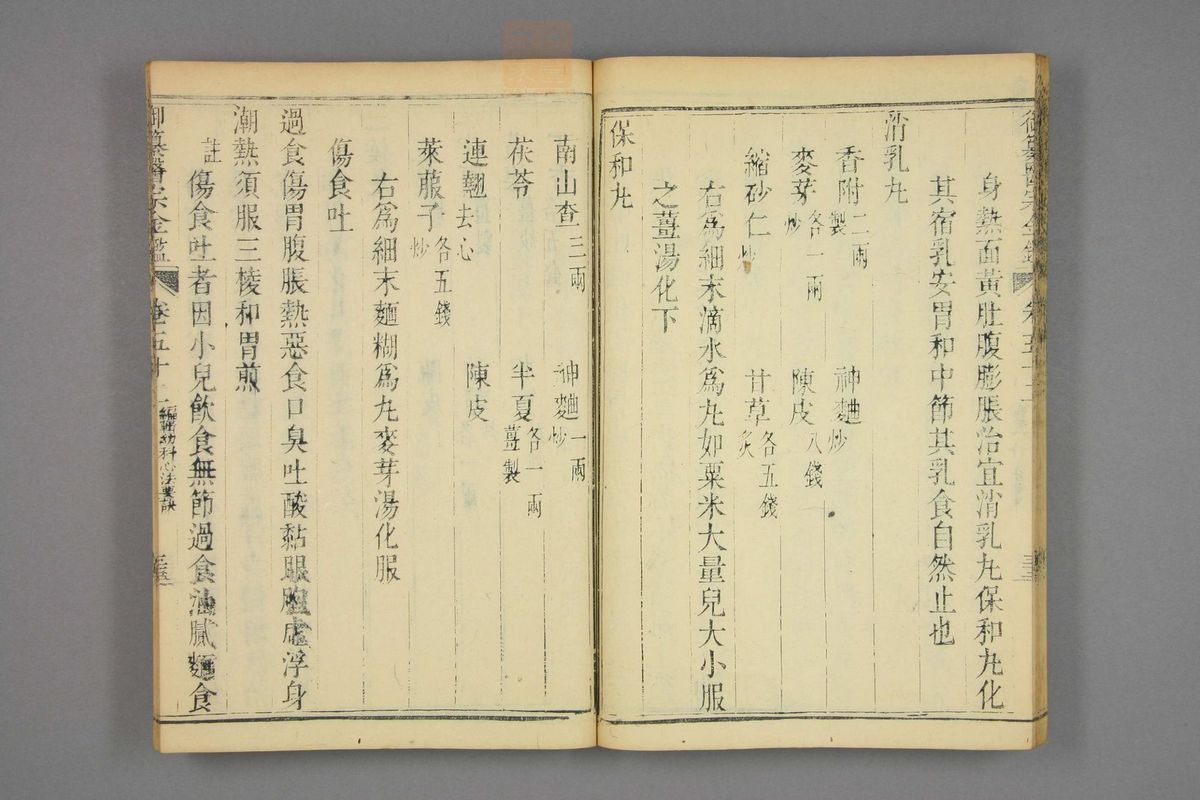 身熱面黃肚腹膨脹治宜消乳丸保和丸化
其宿乳安胃和中節其乳食自然止也
消乳丸
香附製二兩 神麯炒
麥芽炒各一兩 陳皮八錢
縮砂仁炒 甘草炙各五錢
右爲細末滴水爲丸如粟米大量兒大小服
之薑湯化下
保和丸
南山查三兩 神麯炒一兩
茯苓 半夏薑製各一兩
連翹去心 陳皮
萊菔子炒各五錢
右爲細末麵糊爲丸麥芽湯化服
傷食吐
過食傷胃腹脹熱惡食口臭吐酸黏眼胞虛浮身
潮熱須服三棱和胃煎
註傷食吐者因小兒飲食無節過食油膩麵食
御纂醫宗金鑑 卷五十二 編輯幼科心法要訣